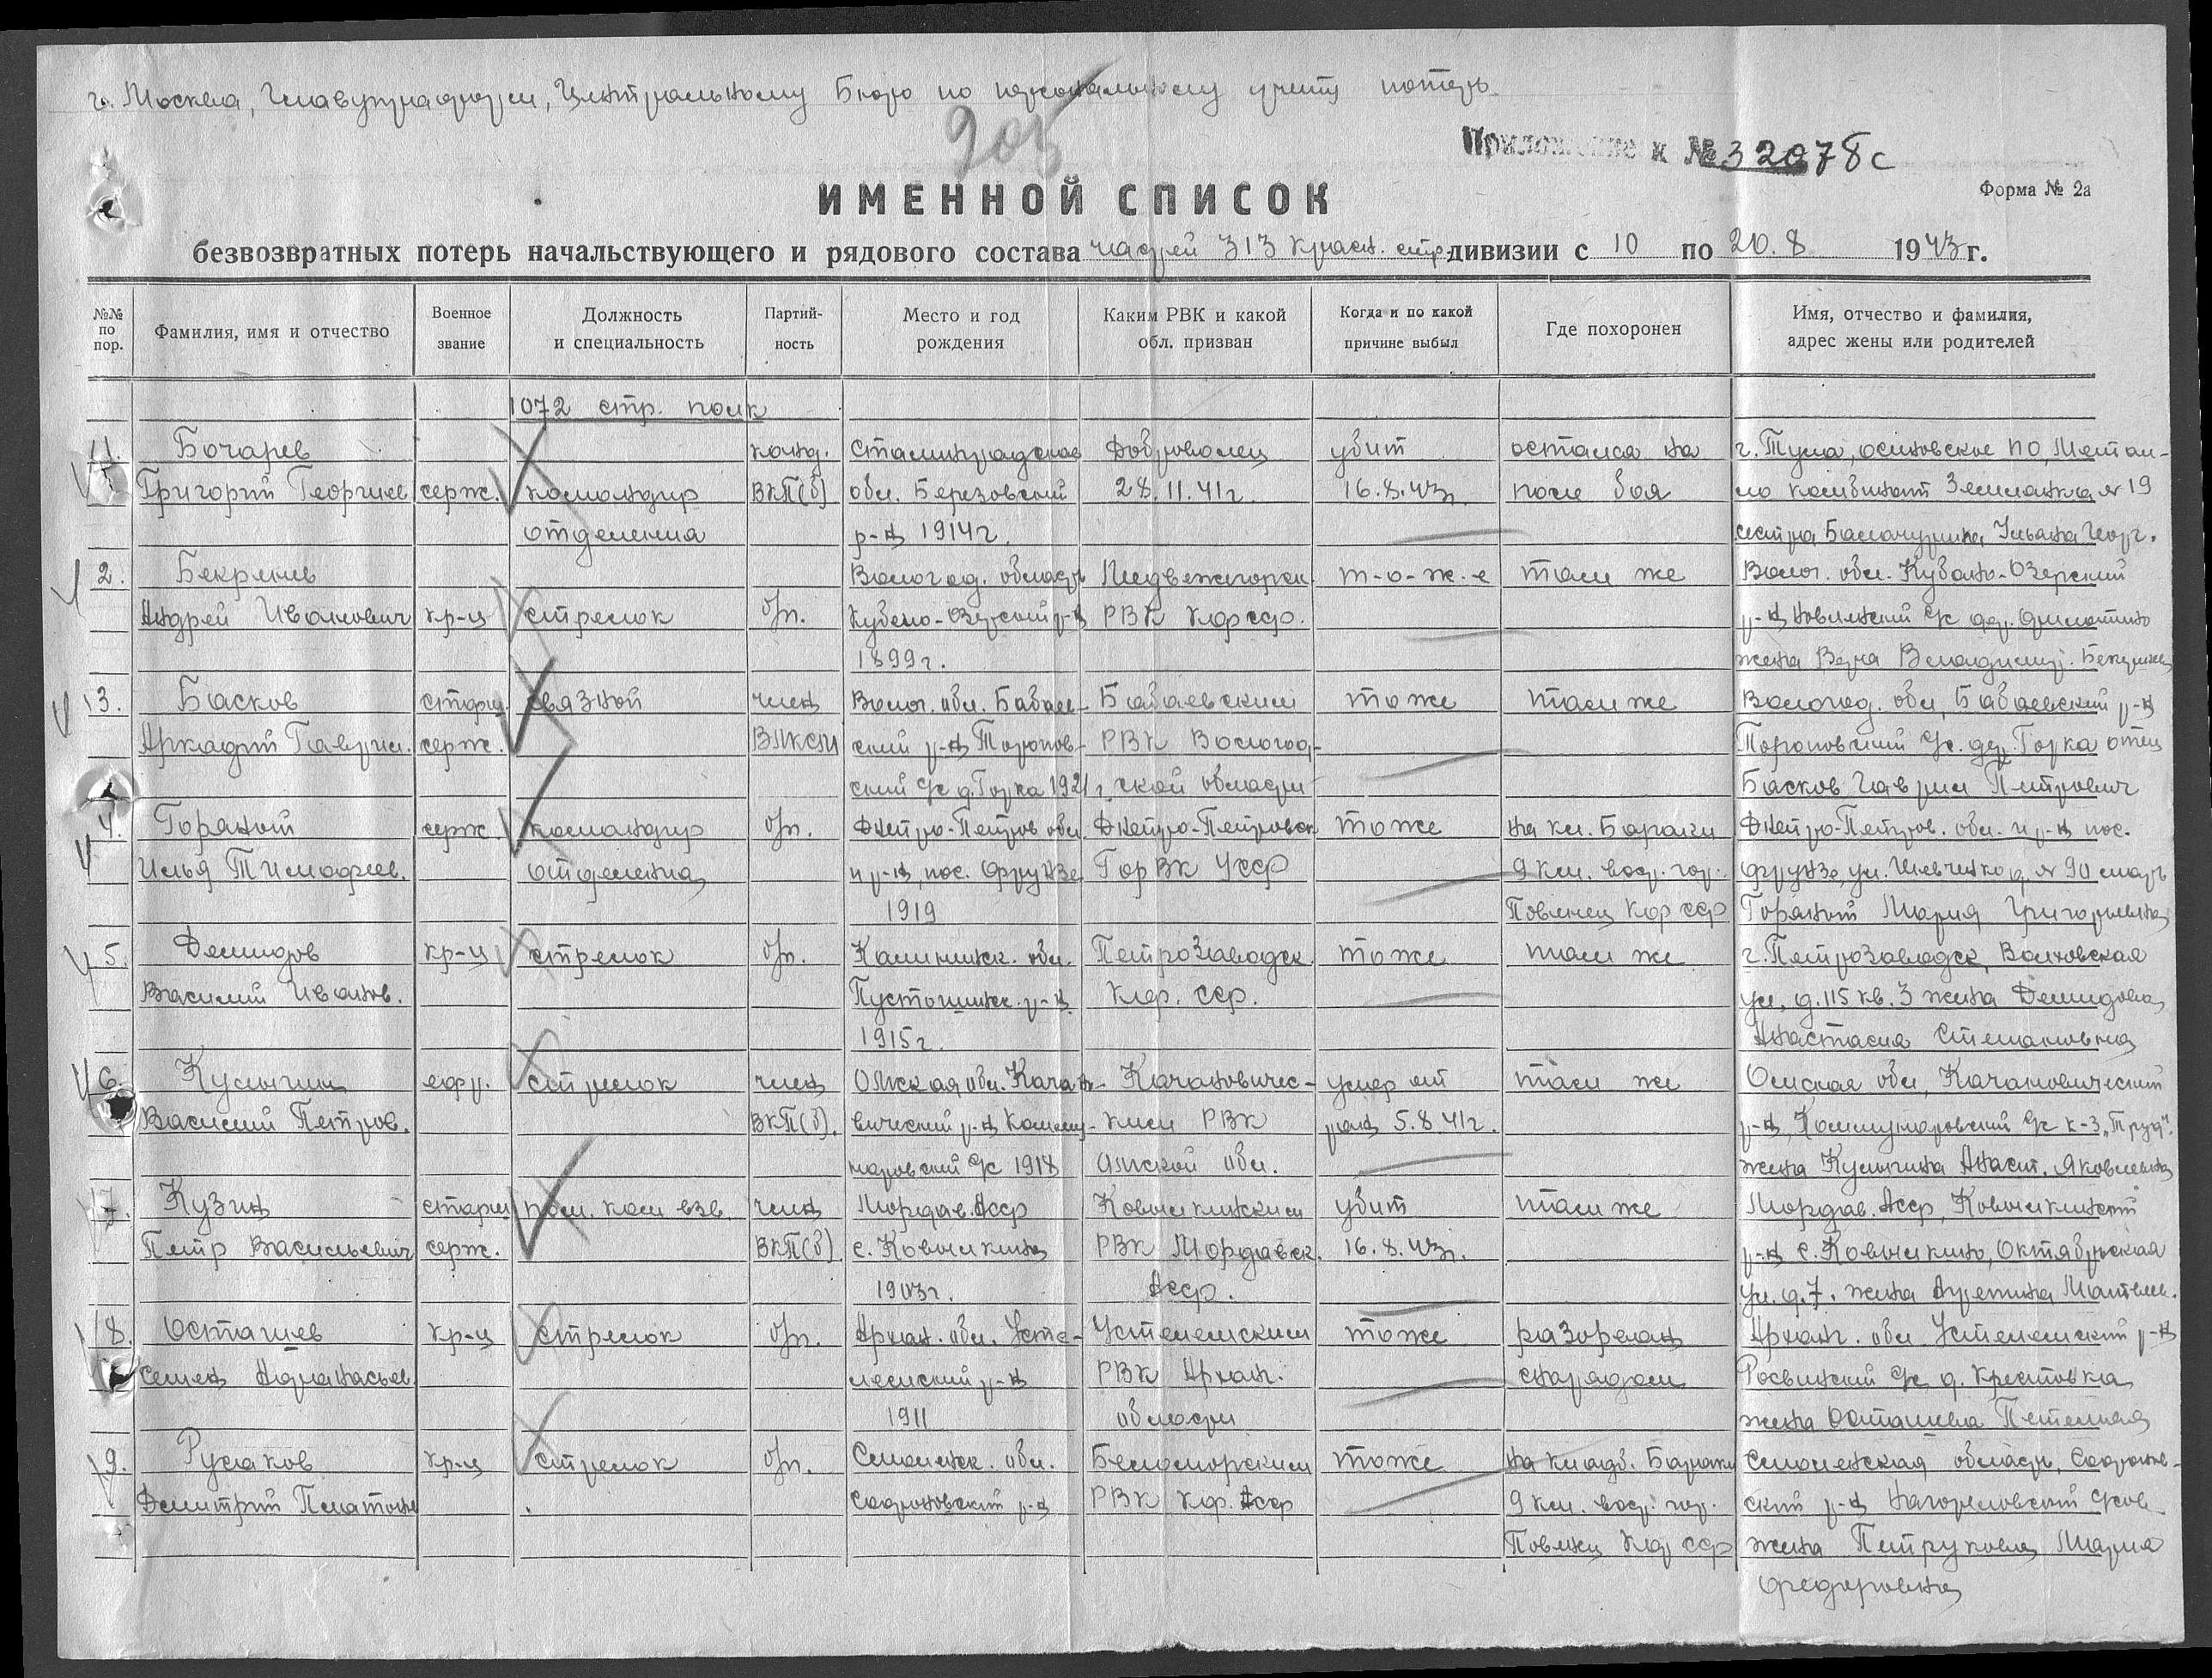 г. Москва, Главупраформ, Центральному Бюро по персональному учету потерь
205
Приложение к № 32078с
ИМЕННОЙ СПИСОК
Форма № 2а
безвозвратных потерь начальствующего и рядового состава частей 313 красн. стр. дивизии с 10 по 20.8 1943 г.
№№ по пор.
Фамилия, имя и отчество
Военное звание
Должность и специальность
Партий-ность
Место и год рождения
Каким РВК и какой обл. призван
Когда и по какой причине выбыл
Где похоронен
Имя, отчество и фамилия, адрес жены или родителей
1072 стр. полк
1. Бочарев канд. Сталинградская Доброволец убит остался на г. Тула, осиновское ПО, Метал-
Григорий Георгиев серж. командир ВКП(б) обл. Березовский 28.11.41г. 16.8.43г. поле боя ло комбинат Землянка № 19
отделения р-н 1914г. сестра Ульяна Георг.
2. Бекренев Вологод. область Медвежгорск. т-о-ж-е там же Волог. обл. Кубено-Озерский
Андрей Иванович кр-ц стрелок б/п. Кубено-Озерский р-н РВК Кфсср. р-н, с/с дер. Филютино
1899г. жена Вера Владимир.
3. Басков старш. связной член Волог. обл. Бабаев- Бабаевским тоже там же Вологод. обл, Бабаевский р-н
Аркадий Гаврил. серж. ВЛКСМ ский р-н Тороповский РВК Вологод- Тороповский с/с. дер. Горка отец
ский с/с д. Горка 1921г. ской области Басков Гаврил Петрович
4. Горяной серж. командир б/п. Днепро-Петров обл. Днепро-Петровск тоже на кл. Бараки Днепро-Петров. обл. и р-н пос.
Илья Тимофеев. отделения и р-н, пос. Фрунзе ГорВК Усср 9 км. вост. гор. Фрунзе, ул. Шевченко д. № 90 мать
1919 Повенец Кфсср Горяной Мария Григорьевна
5. Демидов кр-ц стрелок б/п. Калининск. обл. Петрозаводск. тоже там же г. Петрозаводск, Волховская
Василий Иванов. Пустошинск. р-н Кфсср. ул, д. 115 кв. 3 жена Демидова
1915г. Анастасия Степановна
6. Кулыгин ефр. стрелок член Омская обл. Качано- Качановичес- умер от там же Омская обл, Качановический
Василий Петров. ВКП(б). вический р-н Комму- ким РВК ран 5.8.41г. р-н, Коммунаровский с/с к-з "Труд".
наровский с/с 1918 Омской обл. жена Кулыгина Анаст. Яковлевна
7. Кузин старш пом. ком взв. член Мордав. Асср Ковылкинским убит там же Мордав. Асср, Ковылкинский
Петр Васильевич серж. ВКП(б) с. Ковылкино РВК Мордавск. 16.8.43г. р-н с. Ковылкино, Октябрьская
1903г. Асср. ул. д. 7. жена Матвеев.
8. Осташев кр-ц стрелок б/п. Архан. обл. Усть- Устьцелемским тоже разорван Арханг. обл. Устьцелемский р-н
Семен Афанасьев. целемский р-н РВК Архан. снарядом с/с д. Крестовка
1911 области жена Осташева
9. Русаков кр-ц стрелок б/п. Смоленск. обл. Беломорским тоже на кладб. Бараки Смоленская область, Сафонов-
Дмитрий Платон. Сафоновский р-н РВК Кф. Асср 9 км. вост. гор. ский р-н с/сов
Повенец Кфсср жена Петрукова Мария
Федоровна